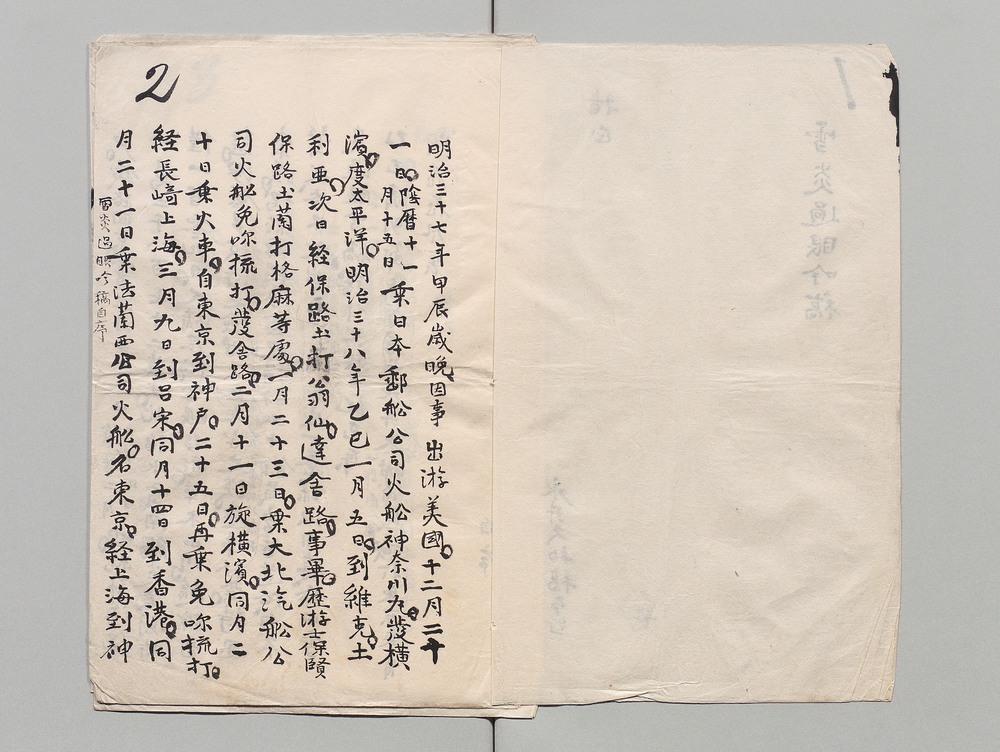 2
明治三十七年甲辰歲晚因事出游美國。十二月二十
一日。陰曆十一月十五日乘日本郵船公司火船神奈川丸。發橫
濱。度太平洋。明治三十八年乙巳一月五日。到維克。土
利亞。次日経保路土打翁仙達舍路。事畢。歷游士保賢
保路土蘭打格麻等處。一月二十三日。乘大北汽船公
司火船免你梳打。發舍路。二月十一日旋橫濱。同月二
十日乘火車。自東京到神戶。二十五日。再乘免你梳打。
経長崎上海。三月九日到呂宋。同月十四日到香港。同
月二十一日乘法蘭西公司火船。名東京。経上海到神
雪炎過眼吟稿自序
1
雪炎過眼吟稿